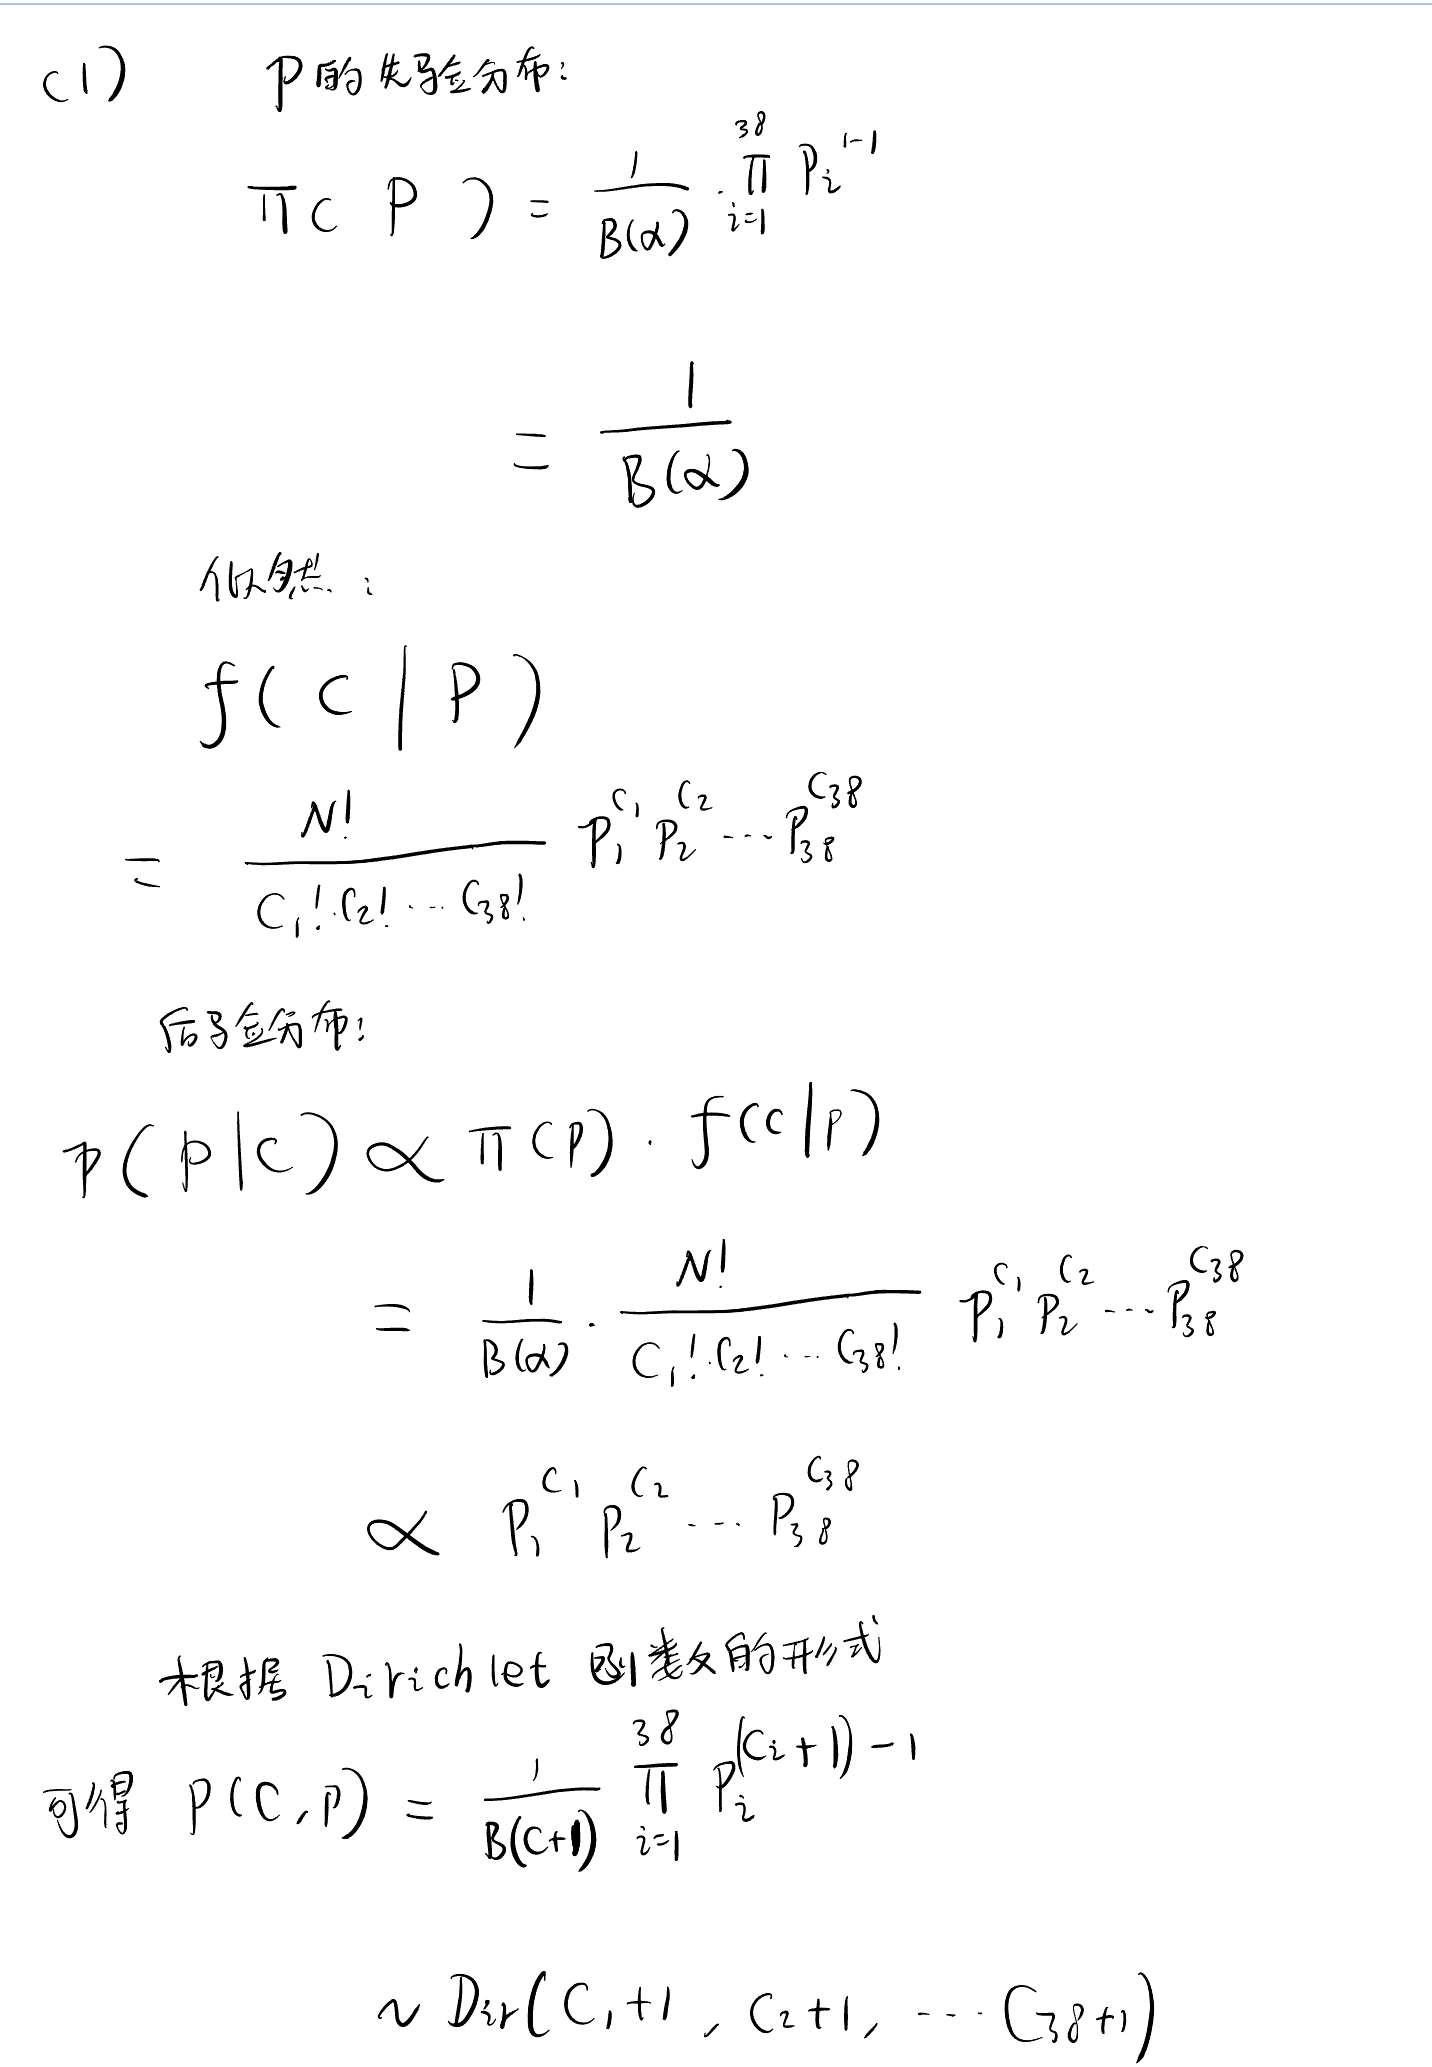 (1) P的先验分布:
π(P) = \frac{1}{B(α)} · \prod_{i=1}^{38} P_i^{1-1}
= \frac{1}{B(α)}
似然:
f(C|P)
= \frac{N!}{C_1!·C_2!···C_{38}!} P_1^{C_1} P_2^{C_2} ··· P_{38}^{C_{38}}
后验分布:
P(P|C) ∝ π(P) · f(C|P)
= \frac{1}{B(α)} · \frac{N!}{C_1!·C_2!···C_{38}!} P_1^{C_1} P_2^{C_2} ··· P_{38}^{C_{38}}
∝ P_1^{C_1} P_2^{C_2} ··· P_{38}^{C_{38}}
根据 Dirichlet 数的形式
可得 P(C,P) = \frac{1}{B(C+1)} \prod_{i=1}^{38} P_i^{(C_i+1)-1}
~ Dir(C_1+1, C_2+1, ··· C_{38}+1)